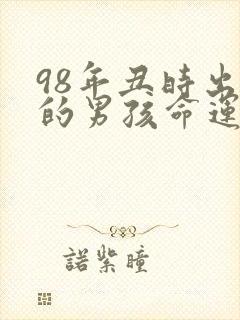 98年丑時出
的男孩命運
諾紫瞳